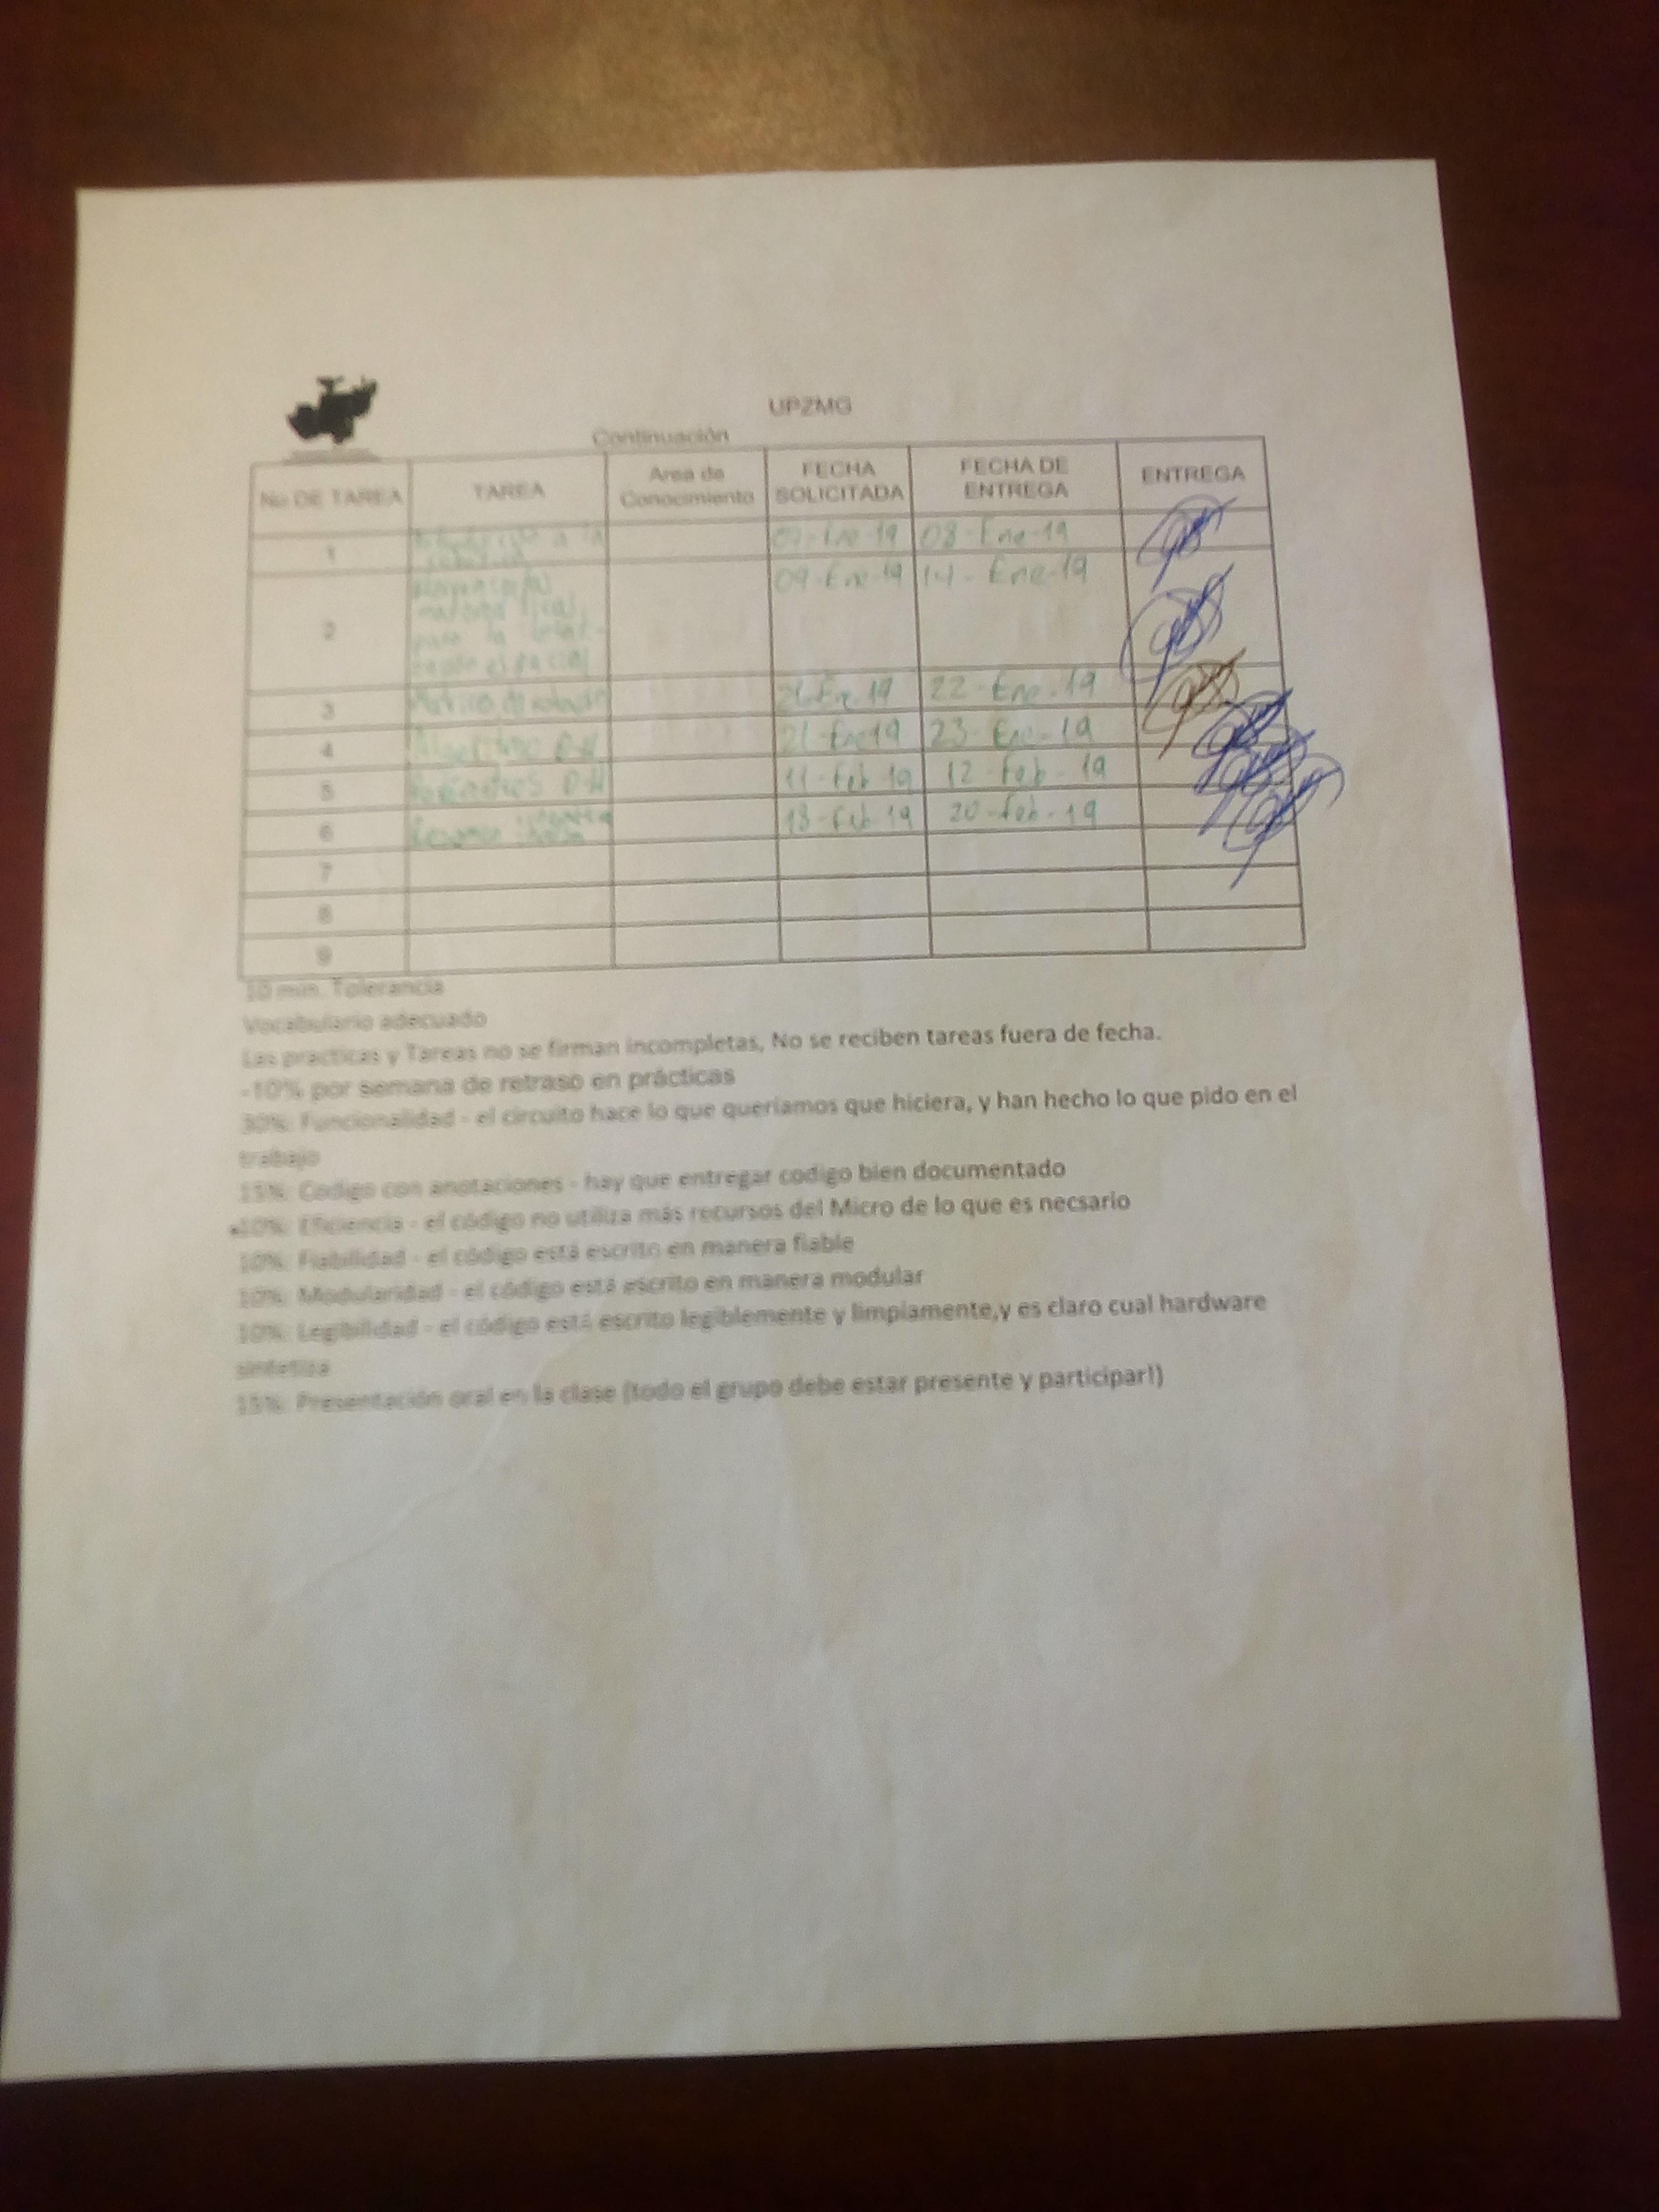 UPZMG
Continuación
No DE TAREA TAREA Area de Conocimiento FECHA SOLICITADA FECHA DE ENTREGA ENTREGA
1 a la 07-Ene-19 08-Ene-19
2 para la 09-Ene-19 14-Ene-19
3 21-Ene-19 22-Ene-19
4 Algoritmo D-H 21-Ene19 23-Ene-19
5 D-H 11-Feb-19 12-Feb-19
6 18-Feb-19 20-Feb-19
7
8
9
10 min. Tolerancia
Vocabulario adecuado
Las practicas y Tareas no se firman incompletas, No se reciben tareas fuera de fecha.
-10% por semana de retraso en prácticas
30%: Funcionalidad - el circuito hace lo que queríamos que hiciera, y han hecho lo que pido en el
trabajo
15%: Codigo con anotaciones - hay que entregar codigo bien documentado
10%: Eficiencia - el código no utiliza más recursos del Micro de lo que es necsario
10%: Fiabilidad - el código está escrito en manera fiable
10%: Modularidad - el código está escrito en manera modular
10%: Legibilidad - el código está escrito legiblemente y limpiamente,y es claro cual hardware
sintetiza
15%: Presentación oral en la clase (todo el grupo debe estar presente y participar!)